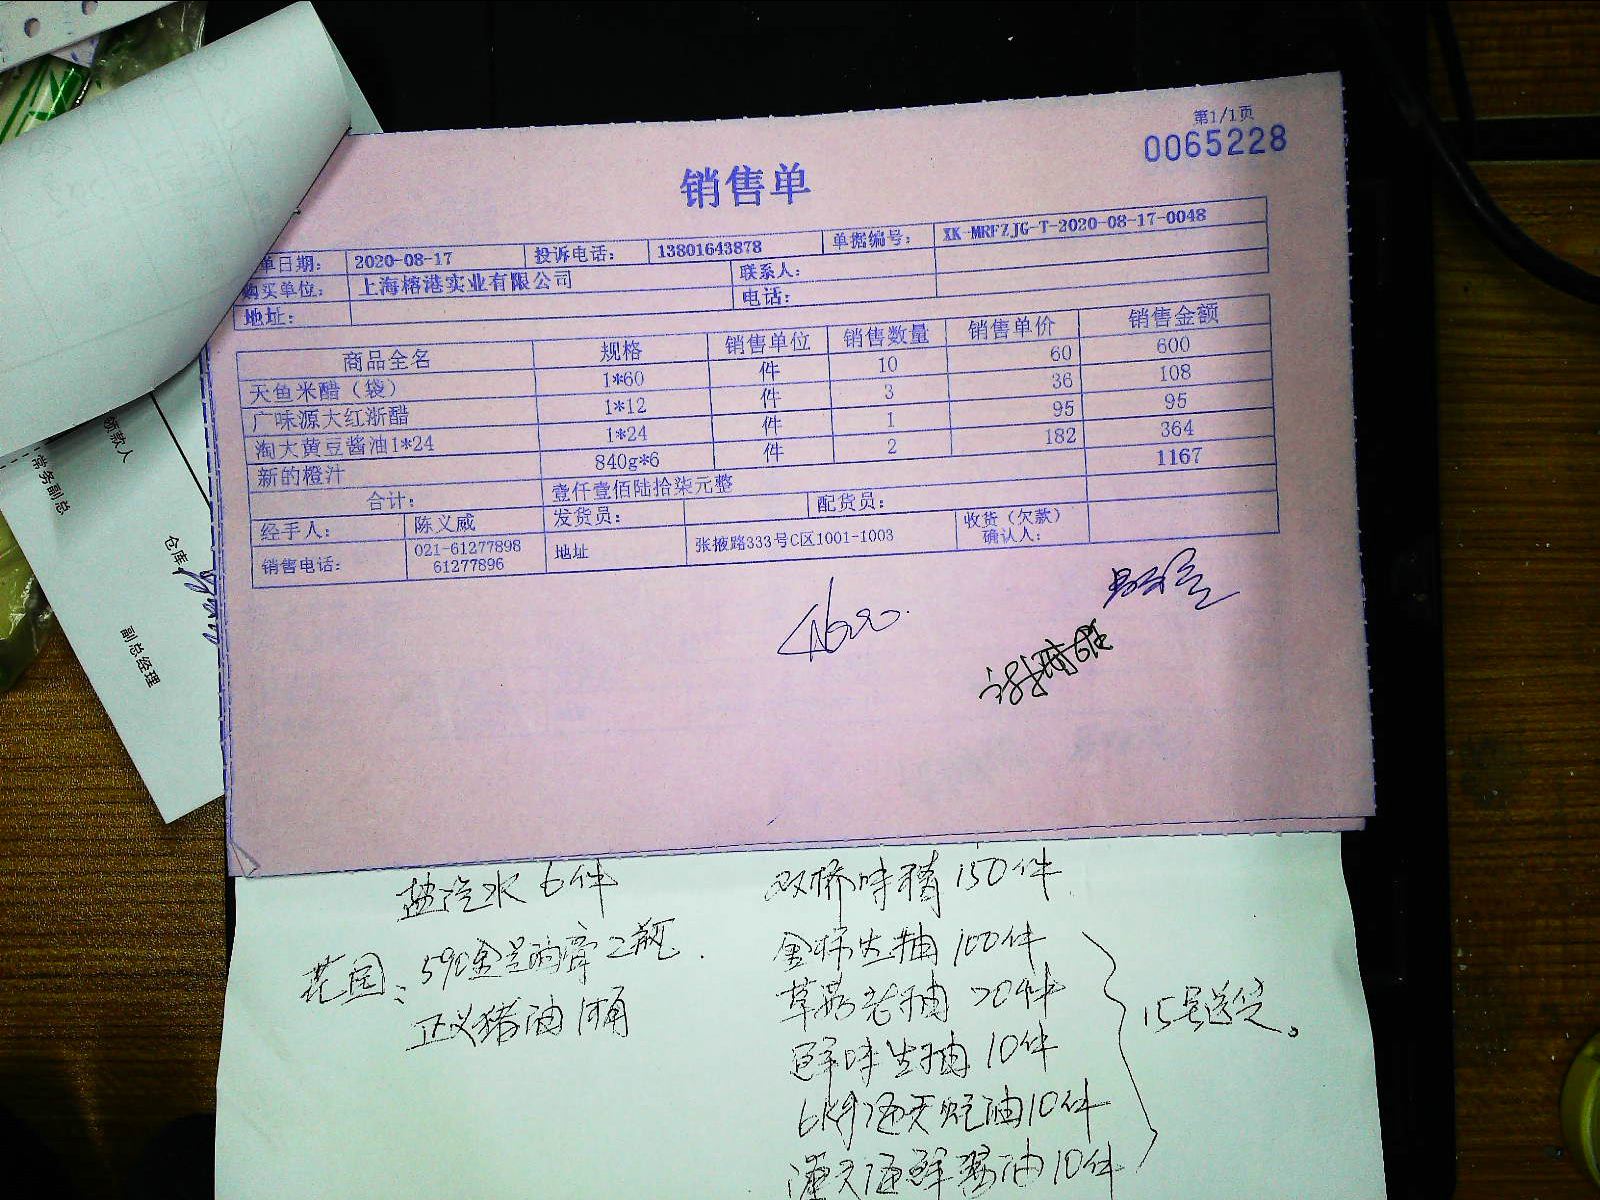 第1/1页
0065228
销售单
单日期： 2020-08-17 投诉电话： 13801643878 单据编号： XK-MRFZJG-T-2020-08-17-0048
购买单位： 上海榕港实业有限公司 联系人：
地址： 电话：
商品全名 规格 销售单位 销售数量 销售单价 销售金额
天鱼米醋（袋） 1*60 件 10 60 600
广味源大红浙醋 1*12 件 3 36 108
淘大黄豆酱油1*24 1*24 件 1 95 95
新的橙汁 840g*6 件 2 182 364
合计： 壹仟壹佰陆拾柒元整 1167
经手人： 陈义威 发货员： 配货员： 收货（欠款）确认人：
销售电话： 021-61277898 61277896 地址 张掖路333号C区1001-1003
领款人
常务副总
仓库
副总经理
盐汽水 6件
花园：590金兰油膏2瓶
正义猪油1桶
双桥味精150件
金标生抽100件
草菇老抽20件
鲜味生抽10件
15号送货。
油10件
海鲜酱油10件